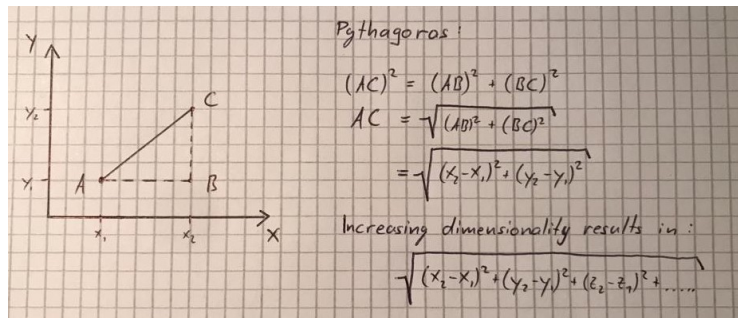 Y
Y₂
Y₁
A
B
C
x₁
x₂
X
Pythagoras:
(AC)² = (AB)² + (BC)²
AC = √((AB)² + (BC)²)
= √((x₂-x₁)² + (y₂-y₁)²)
Increasing dimensionality results in:
√((x₂-x₁)² + (y₂-y₁)² + (z₂-z₁)² + .....